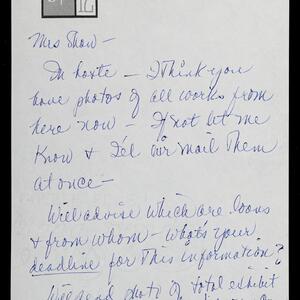 Mrs Shaw —
In haste — I think you
have photos of all works from
here now — If not let me
know & I'll air mail them
at once —
Will advise which are loans
& from whom — What's your
deadline for this information?
Will send photo of total exhibit